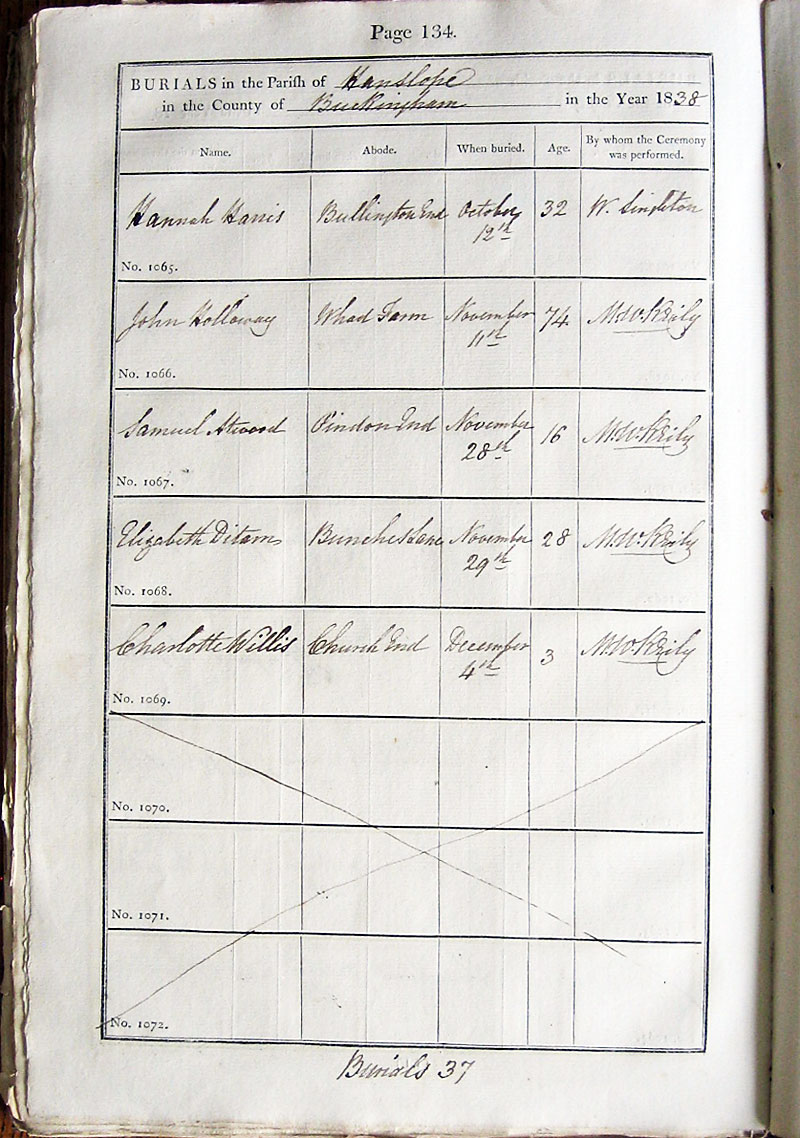 Page 134.
BURIALS in the Parish of Hanslope
in the County of Buckingham in the Year 1838
Name. Abode. When buried. Age. By whom the Ceremony was performed.
Hannah Harris Bullington End October 12th 32 W. Singleton
No. 1065.
John Holloway Whad Farm November 11th 74
No. 1066.
Samuel Atwood Pindon End November 28th 16
No. 1067.
Elizabeth Ditam Bunches Lane November 29th 28
No. 1068.
Charlotte Willis Church End December 4th 3
No. 1069.
No. 1070.
No. 1071.
No. 1072.
Burials 37